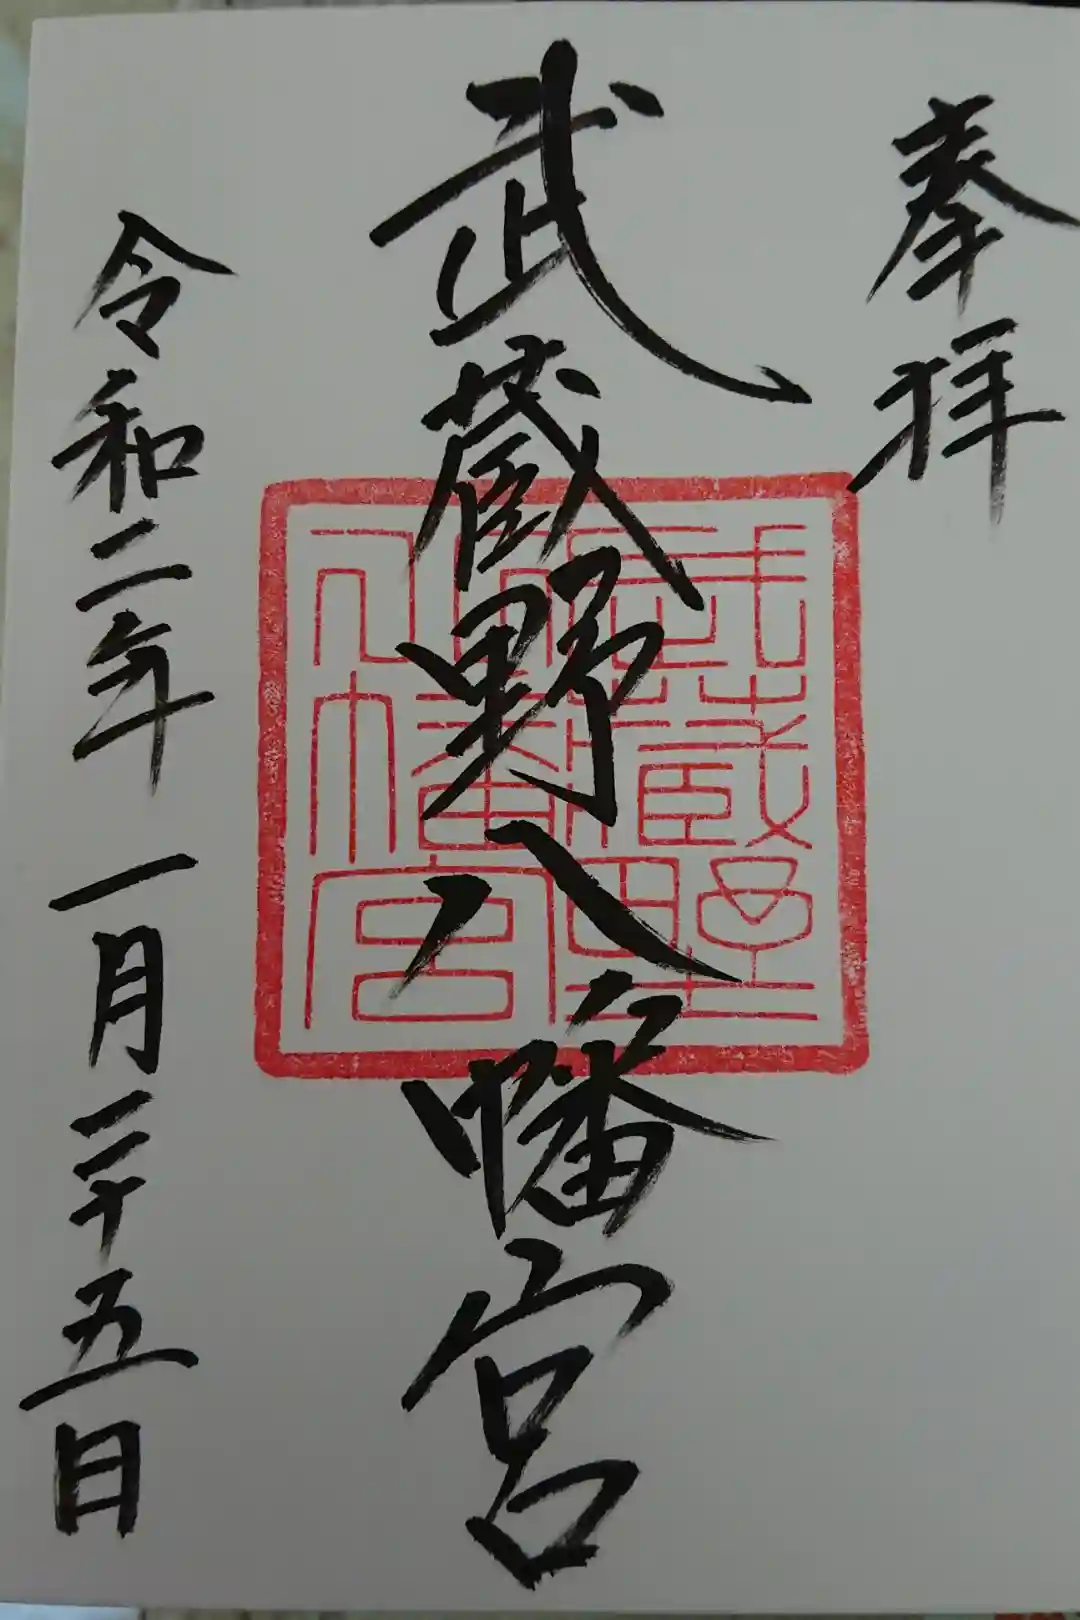 奉拝
武蔵野八幡宮
武蔵野
八幡宮
令和二年一月二十五日